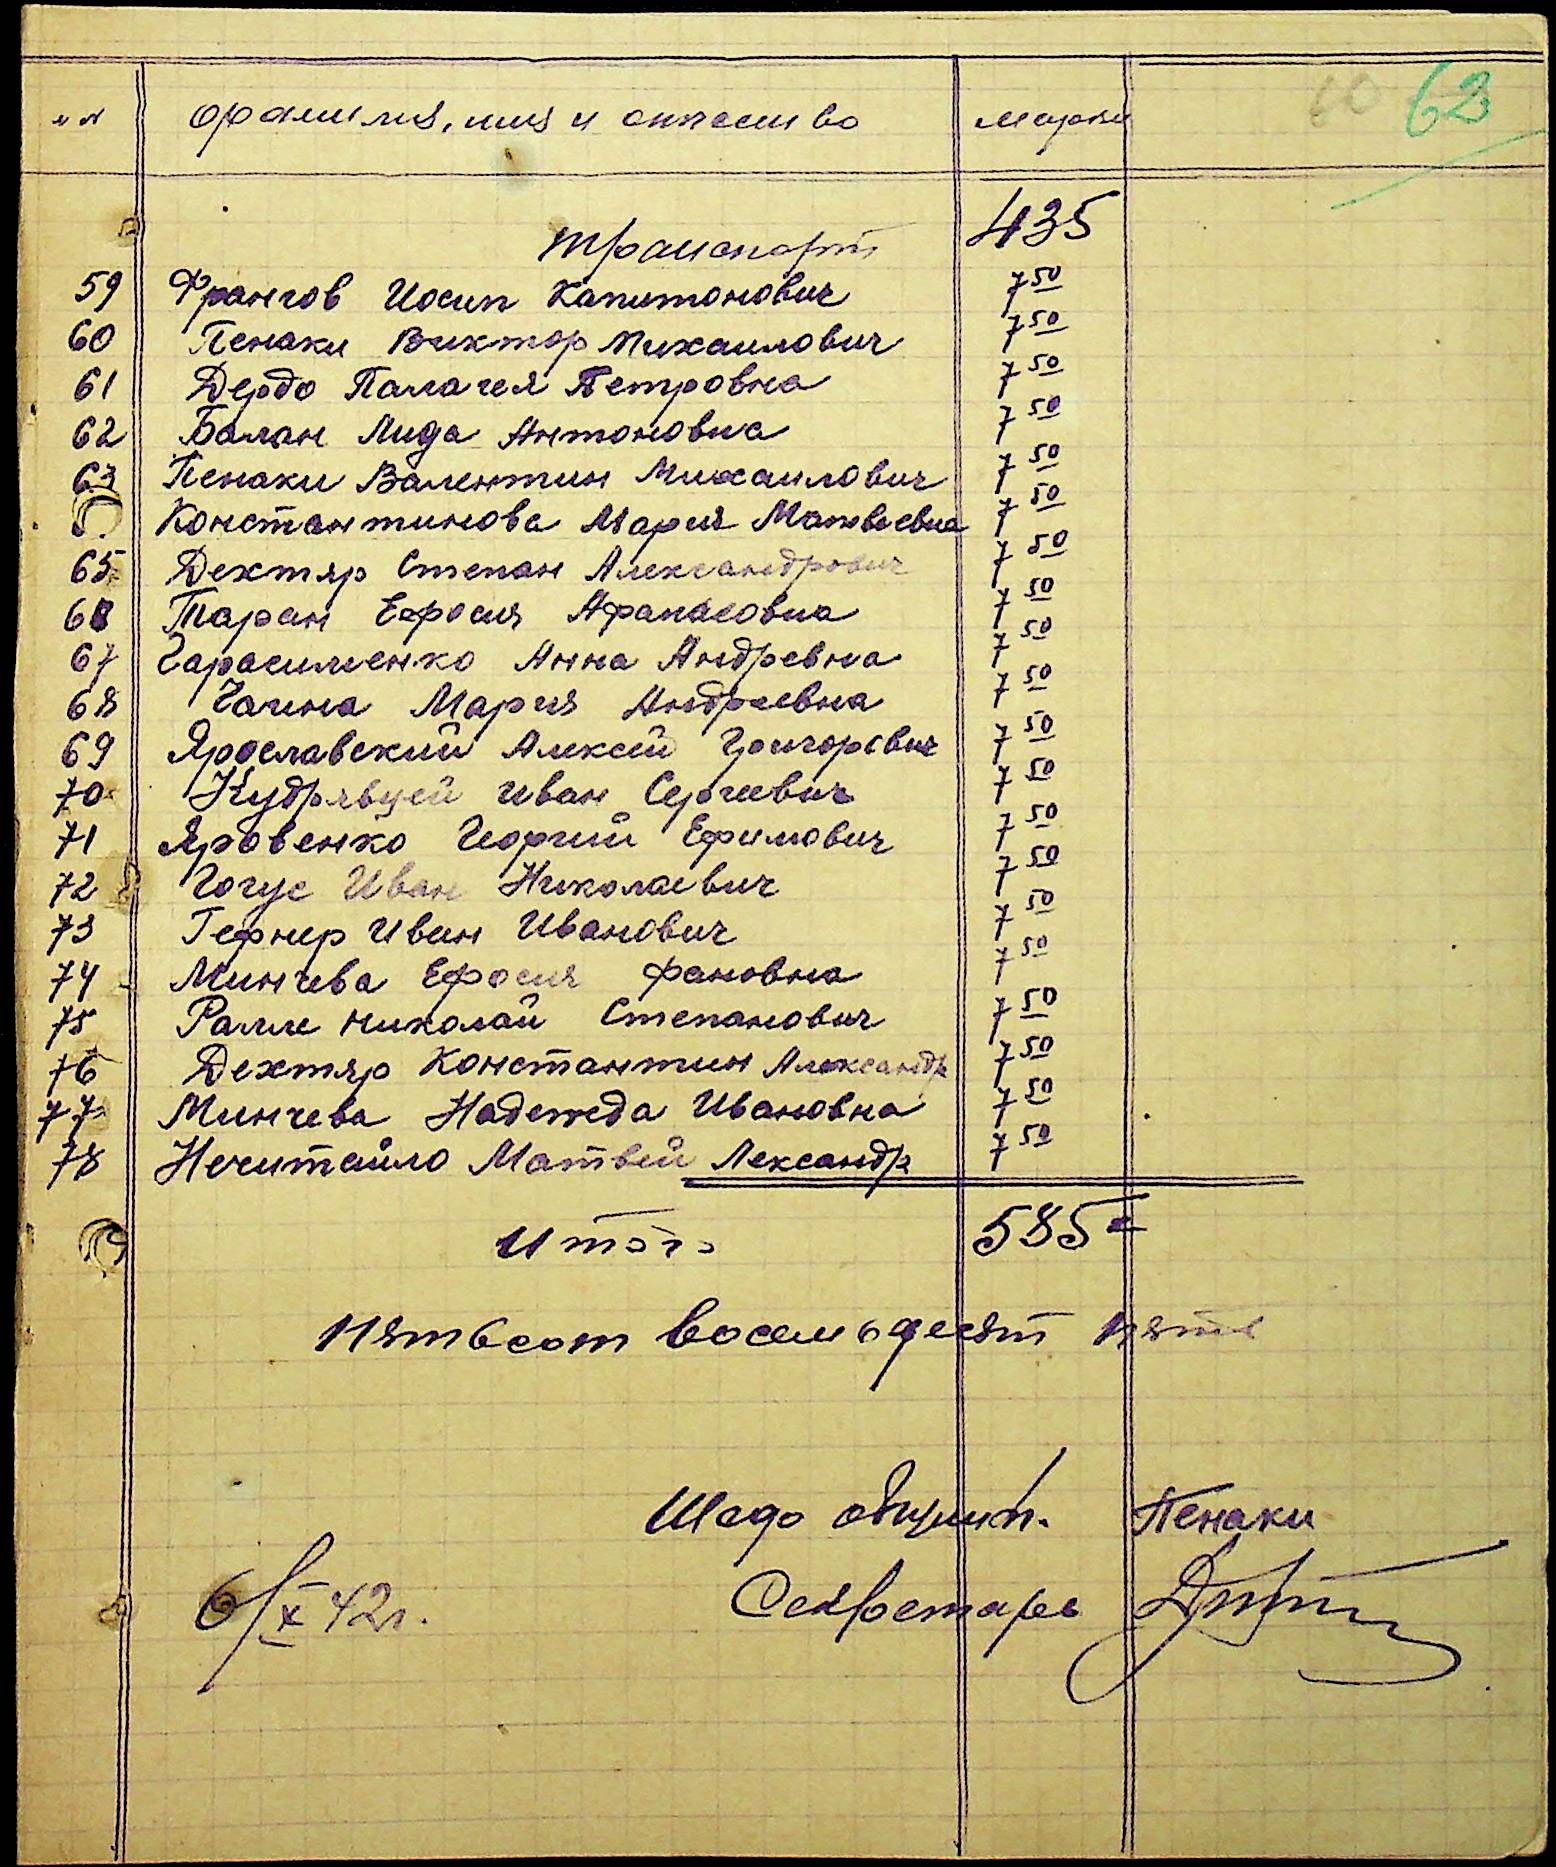 60 62
фамилия, имя и отчество марки
Транспорт 435
59 Франгов Иосип Капитонович 7 50
60 Пенаки Виктор Михаилович 7 50
61 Дердо Палагея Петровна 7 50
62 Балан Лида Антоновна 7 50
63 Пенаки Валентин Михаилович 7 50
Константинова Мария Матвеевна 7 50
65 Дехтяр Степан Александрович 7 50
66 Таран Ефросия Афанасовна 7 50
67 Гарасименко Анна Андревна 7 50
68 Чагина Мария Андреевна 7 50
69 Ярославский Алексей Григоревич 7 50
70 Кудрявцей Иван Сергеевич 7 50
71 Яровенко Георгий Ефимович 7 50
72 Гогус Иван Николаевич 7 50
73 Гефнер Иван Иванович 7 50
74 Минчева Ефросия 7 50
75 Рамле Николай Степанович 7 50
76 Дехтяр Константин Александр 7 50
77 Минчева Надежда Ивановна 7 50
78 Нечитайло Матвей Лександр 7 50
Итого 585=
Пятьсот восемьдесят пять
Шеф общин. Пенаки
6/X 42г. Секретарь